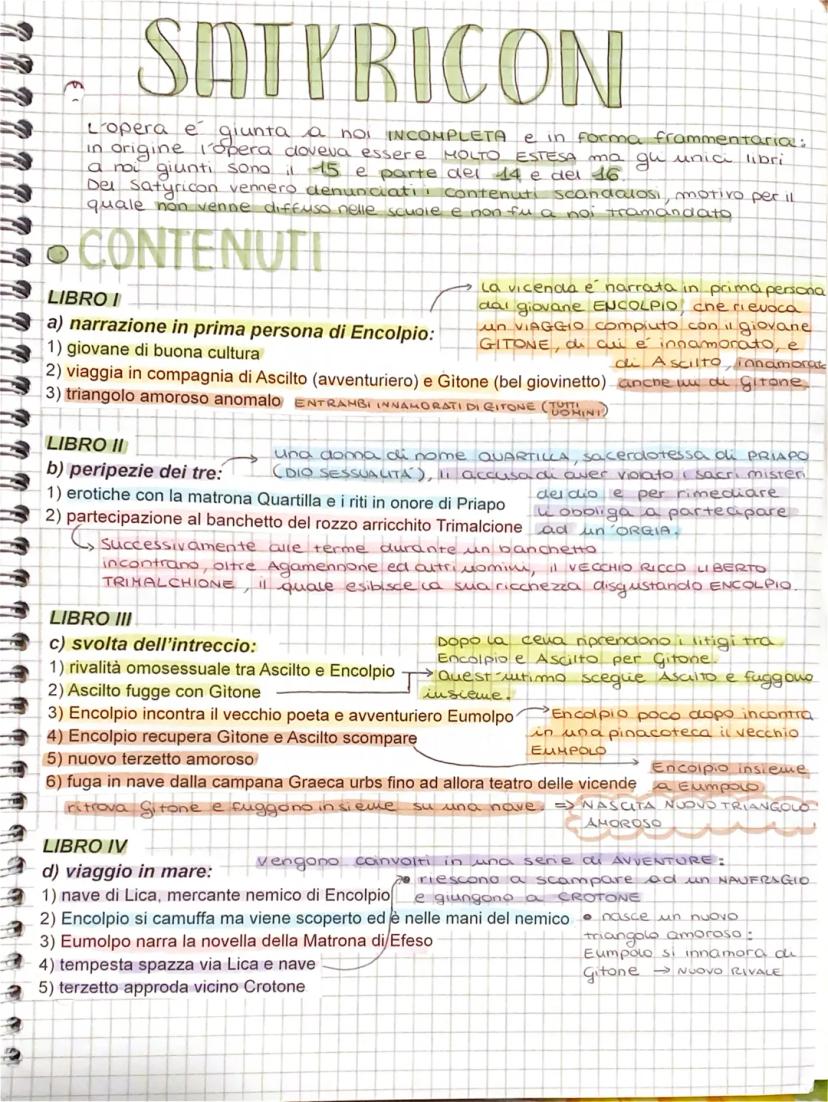 SATYRICON
L'opera e' giunta a noi INCOMPLETA e in forma frammentaria:
in origine l'opera doveva essere MOLTO ESTESA ma gli unici libri
a noi giunti sono il 15 e parte del 14 e del 16
Del Satyricon vennero denunciati i contenuti scandalosi, motivo per il
quale non venne diffuso nelle scuole e non fu a noi tramandato
CONTENUTI
LIBRO I
a) narrazione in prima persona di Encolpio:
1) giovane di buona cultura
2) viaggia in compagnia di Ascilto (avventuriero) e Gitone (bel giovinetto)
3) triangolo amoroso anomalo ENTRAMBI INNAMORATI DI GITONE (TUTTI UOMINI)
La vicenda e' narrata in prima persona
dal giovane ENCOLPIO, che rievoca
un VIAGGIO compiuto con il giovane
GITONE, di cui e' innamorato, e
di Ascilto, innamorat
anche lui di Gitone
LIBRO II
b) peripezie dei tre:
1) erotiche con la matrona Quartilla e i riti in onore di Priapo
2) partecipazione al banchetto del rozzo arricchito Trimalcione
una donna di nome QUARTILLA, sacerdotessa di PRIAPO
(DIO SESSUALITA'), li accusa di aver violato i sacri misteri
del dio e per rimediare
li obbliga a partecipare
ad un'ORGIA.
Successivamente alle terme durante un banchetto
incontrano, oltre Agamennone ed altri uomini, il VECCHIO RICCO LIBERTO
TRIMALCHIONE, il quale esibisce la sua ricchezza disgustando ENCOLPIO.
LIBRO III
c) svolta dell'intreccio:
1) rivalità omosessuale tra Ascilto e Encolpio
2) Ascilto fugge con Gitone
Dopo la cena riprendono i litigi tra
Encolpio e Ascilto per Gitone.
Quest'ultimo sceglie Ascilto e fuggono
insieme.
3) Encolpio incontra il vecchio poeta e avventuriero Eumolpo
4) Encolpio recupera Gitone e Ascilto scompare
5) nuovo terzetto amoroso
6) fuga in nave dalla campana Graeca urbs fino ad allora teatro delle vicende
Encolpio poco dopo incontra
in una pinacoteca il vecchio
EUMPOLO
Encolpio insieme
a Eumpolo
ritrova Gitone e fuggono insieme su una nave. ⇒ NASCITA NUOVO TRIANGOLO
AMOROSO
LIBRO IV
d) viaggio in mare:
1) nave di Lica, mercante nemico di Encolpio
2) Encolpio si camuffa ma viene scoperto ed è nelle mani del nemico
3) Eumolpo narra la novella della Matrona di Efeso
4) tempesta spazza via Lica e nave
5) terzetto approda vicino Crotone
vengono coinvolti in una serie di AVVENTURE:
• riescono a scampare ad un NAUFRAGIO
e giungono a CROTONE
• nasce un nuovo
triangolo amoroso:
Eumpolo si innamora di
Gitone → NUOVO RIVALE